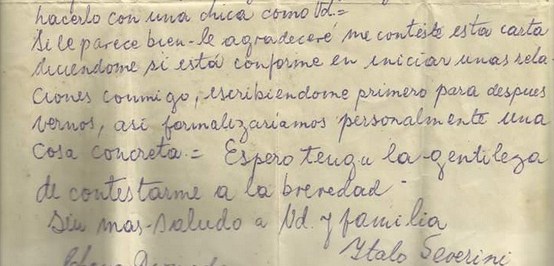 hacerlo con una chica como Vd.=
Si le parece bien-le agradeceré me conteste esta carta
diciendome si está conforme en iniciar unas rela-
ciones conmigo, escribiendome primero para despues
vernos, asi formalizariamos personalmente una
cosa concreta.= Espero tenga la gentileza
de contestarme a la brevedad -
Sin mas-saludo a Vd. y familia
Italo Severini